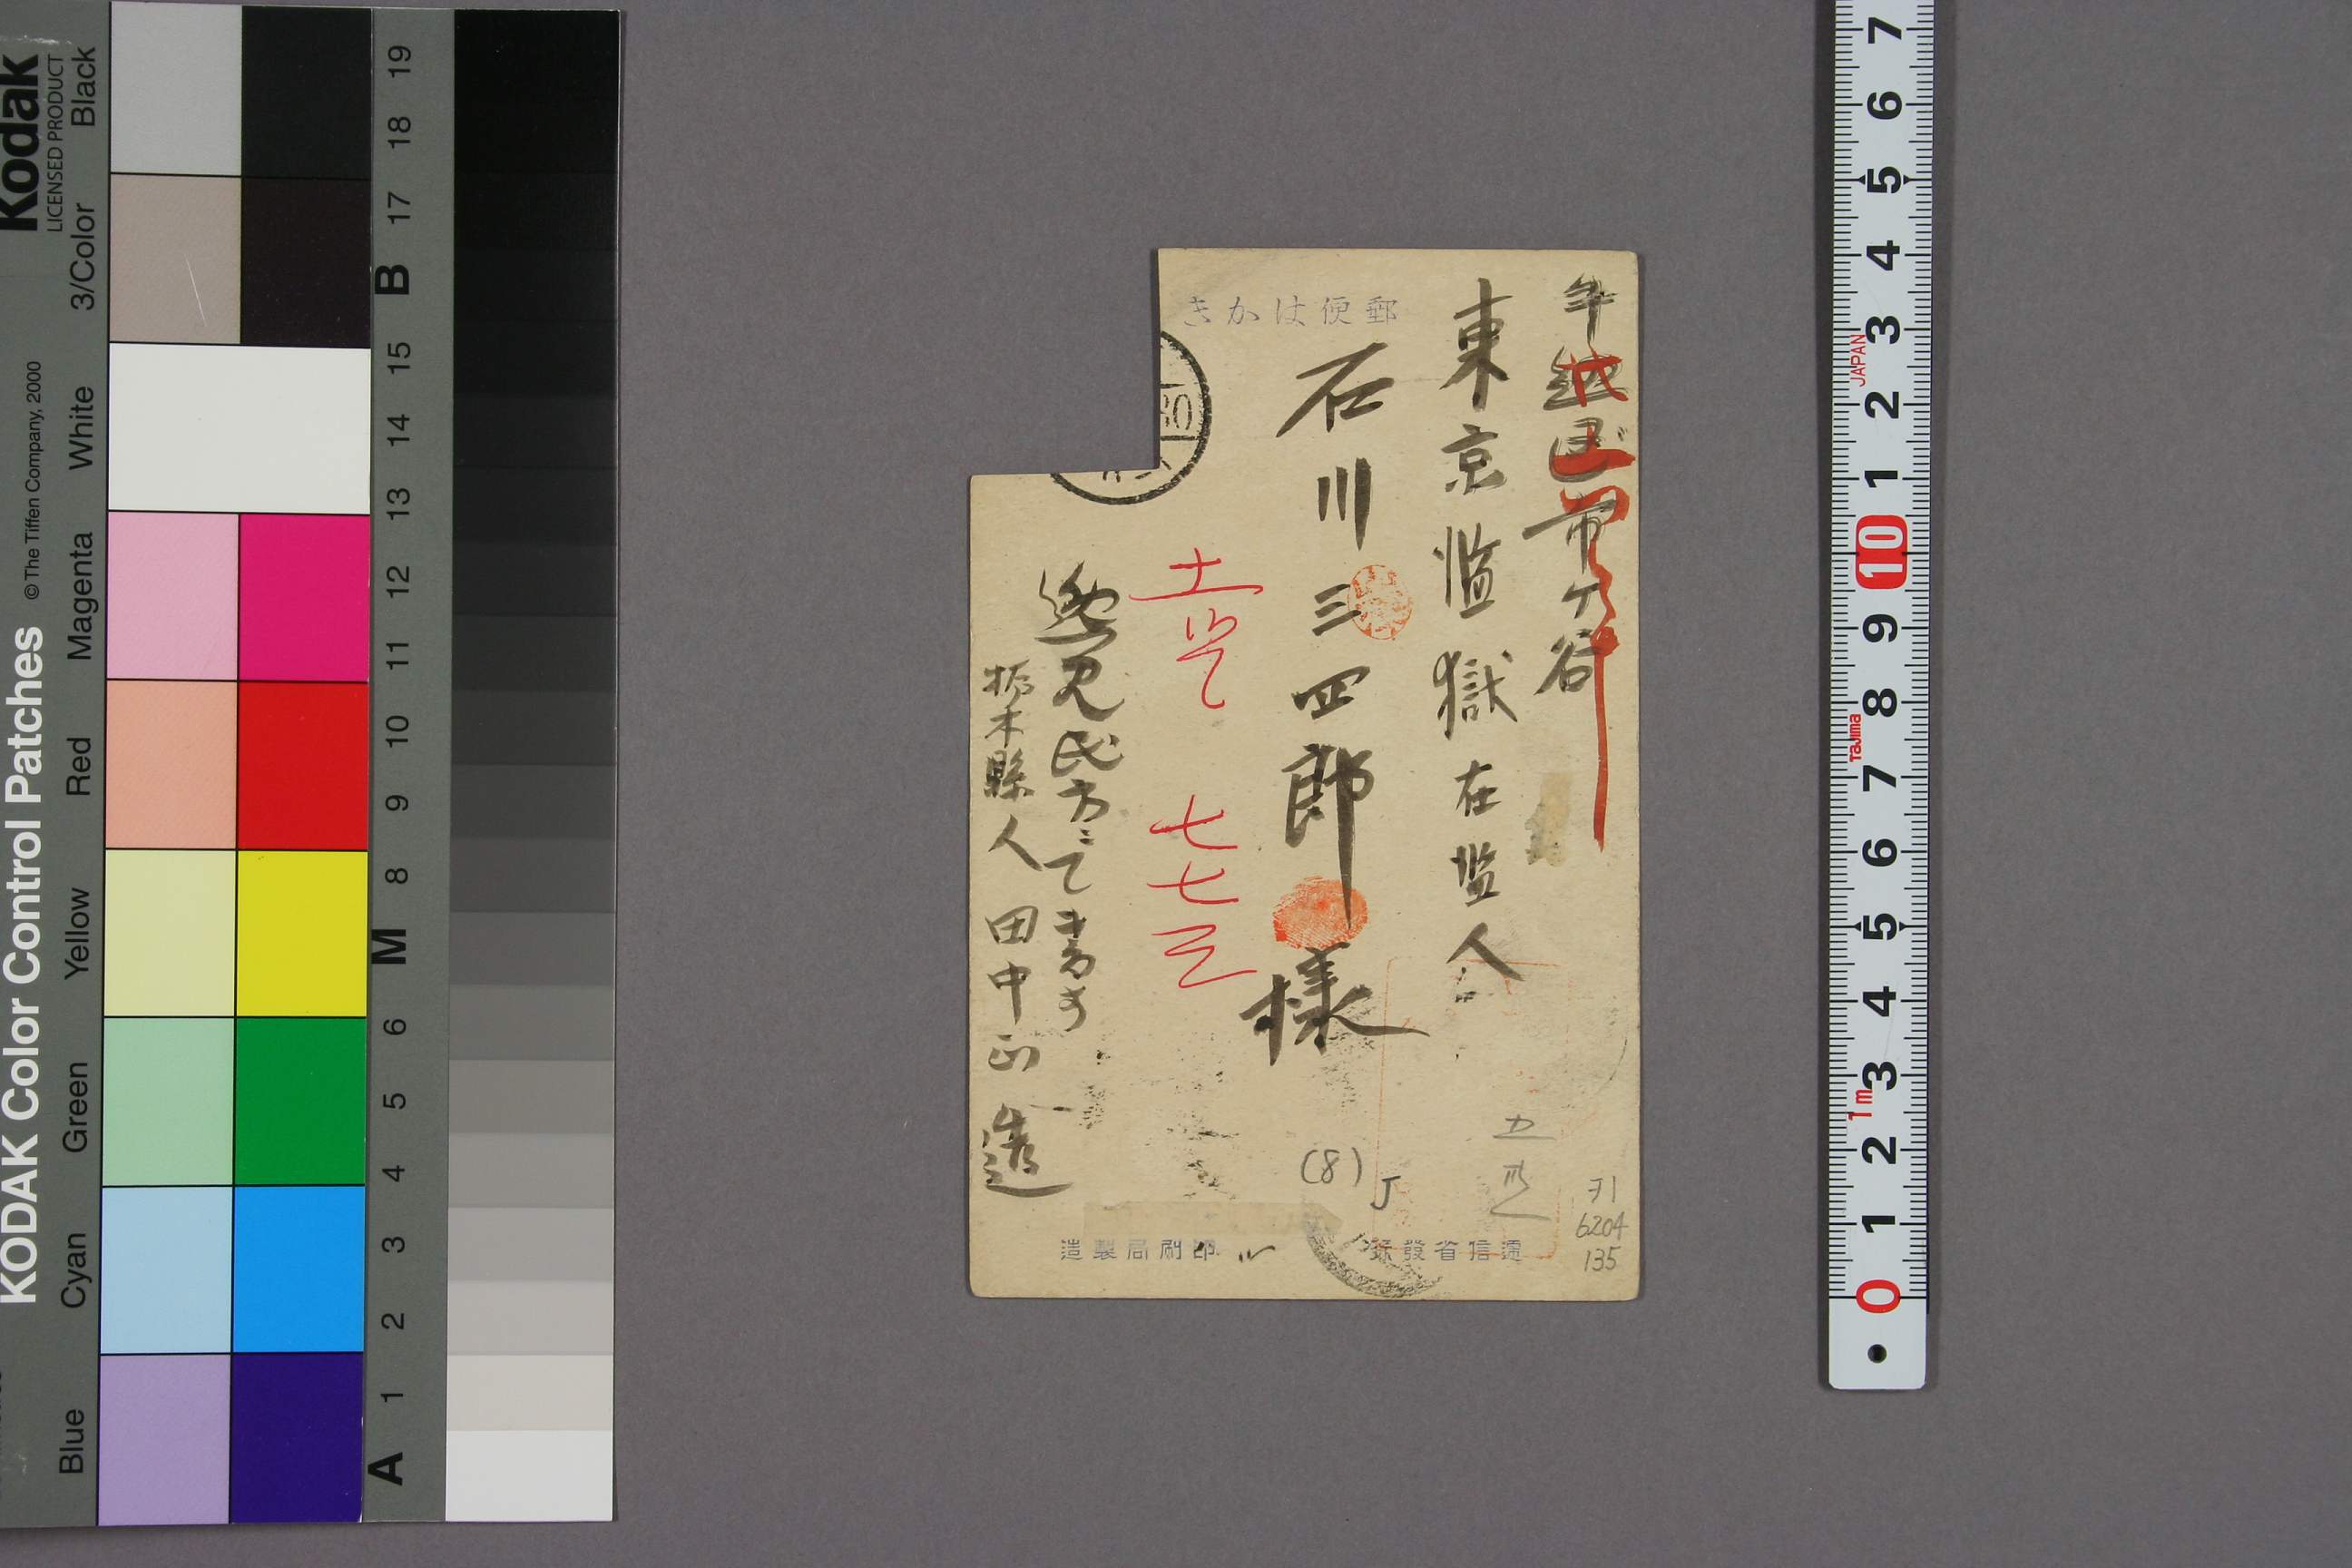 郵便はかき
牛込区市ヶ谷
東京監獄在監人
石川三四郎様
七七三
逸見氏方ニて書す
栃木縣人 田中正造
(8)
J
71
6204
135
逓信省發行
印刷局製造
Kodak
LICENSED PRODUCT
KODAK Color Control Patches
© The Tiffen Company, 2000
Blue
Cyan
Green
Yellow
Red
Magenta
White
3/Color
Black
A 1 2 3 4 5 6 M 8 9 10 11 12 13 14 15 B 17 18 19
7 6 5 4 3 2 1 10 9 8 7 6 5 4 3 2 1 0
JAPAN
Tajima
1m